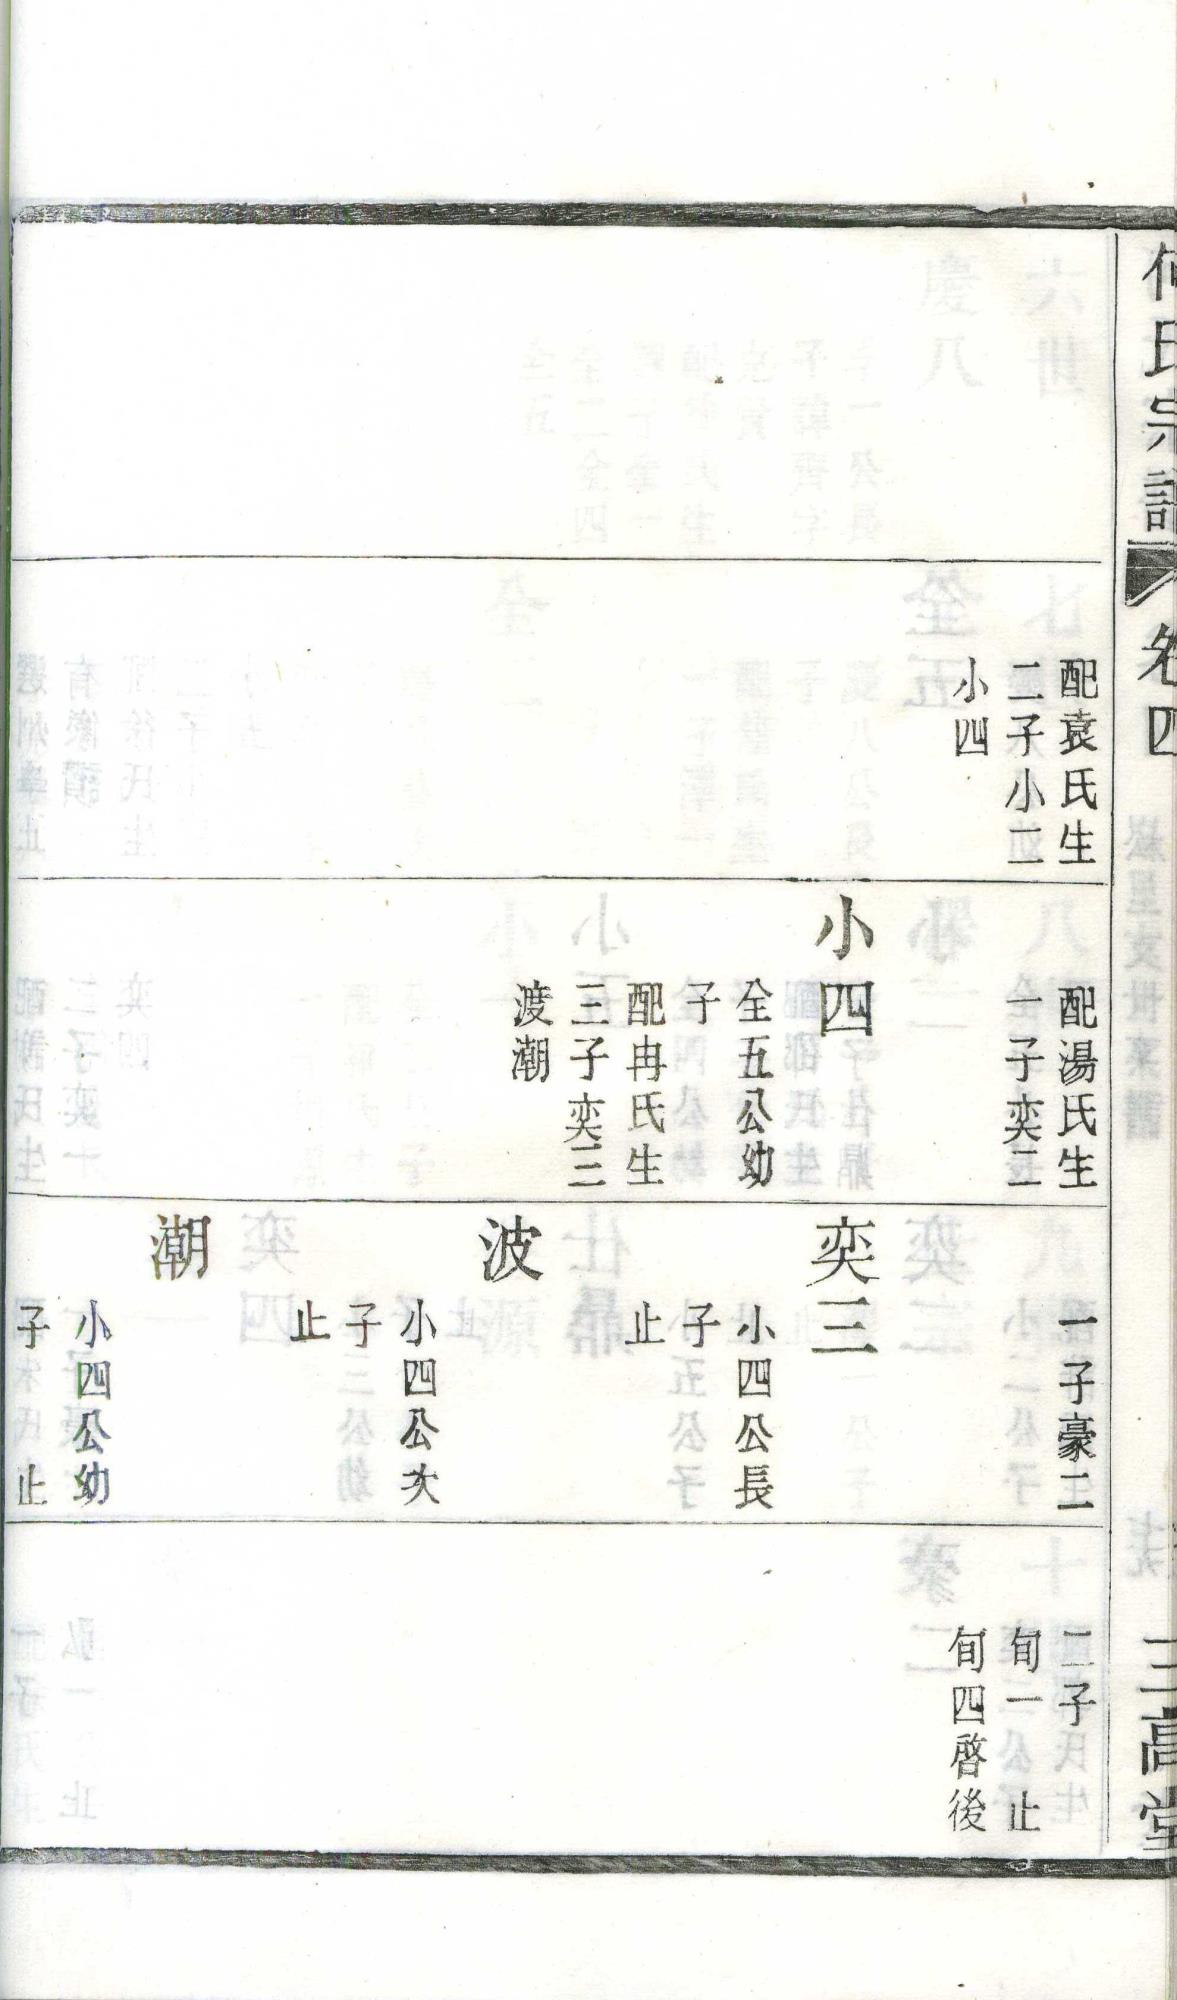 何氏宗譜 卷四 三高堂
配袁氏生
二子小二
小四
配湯氏生
一子奕二
小四
全五公幼
子
配冉氏生
三子奕三
渡潮
一子豪二
奕三
小四公長
子
止
波
小四公次
子
止
潮
小四公幼
子 止
二子
旬一止
旬四啓後